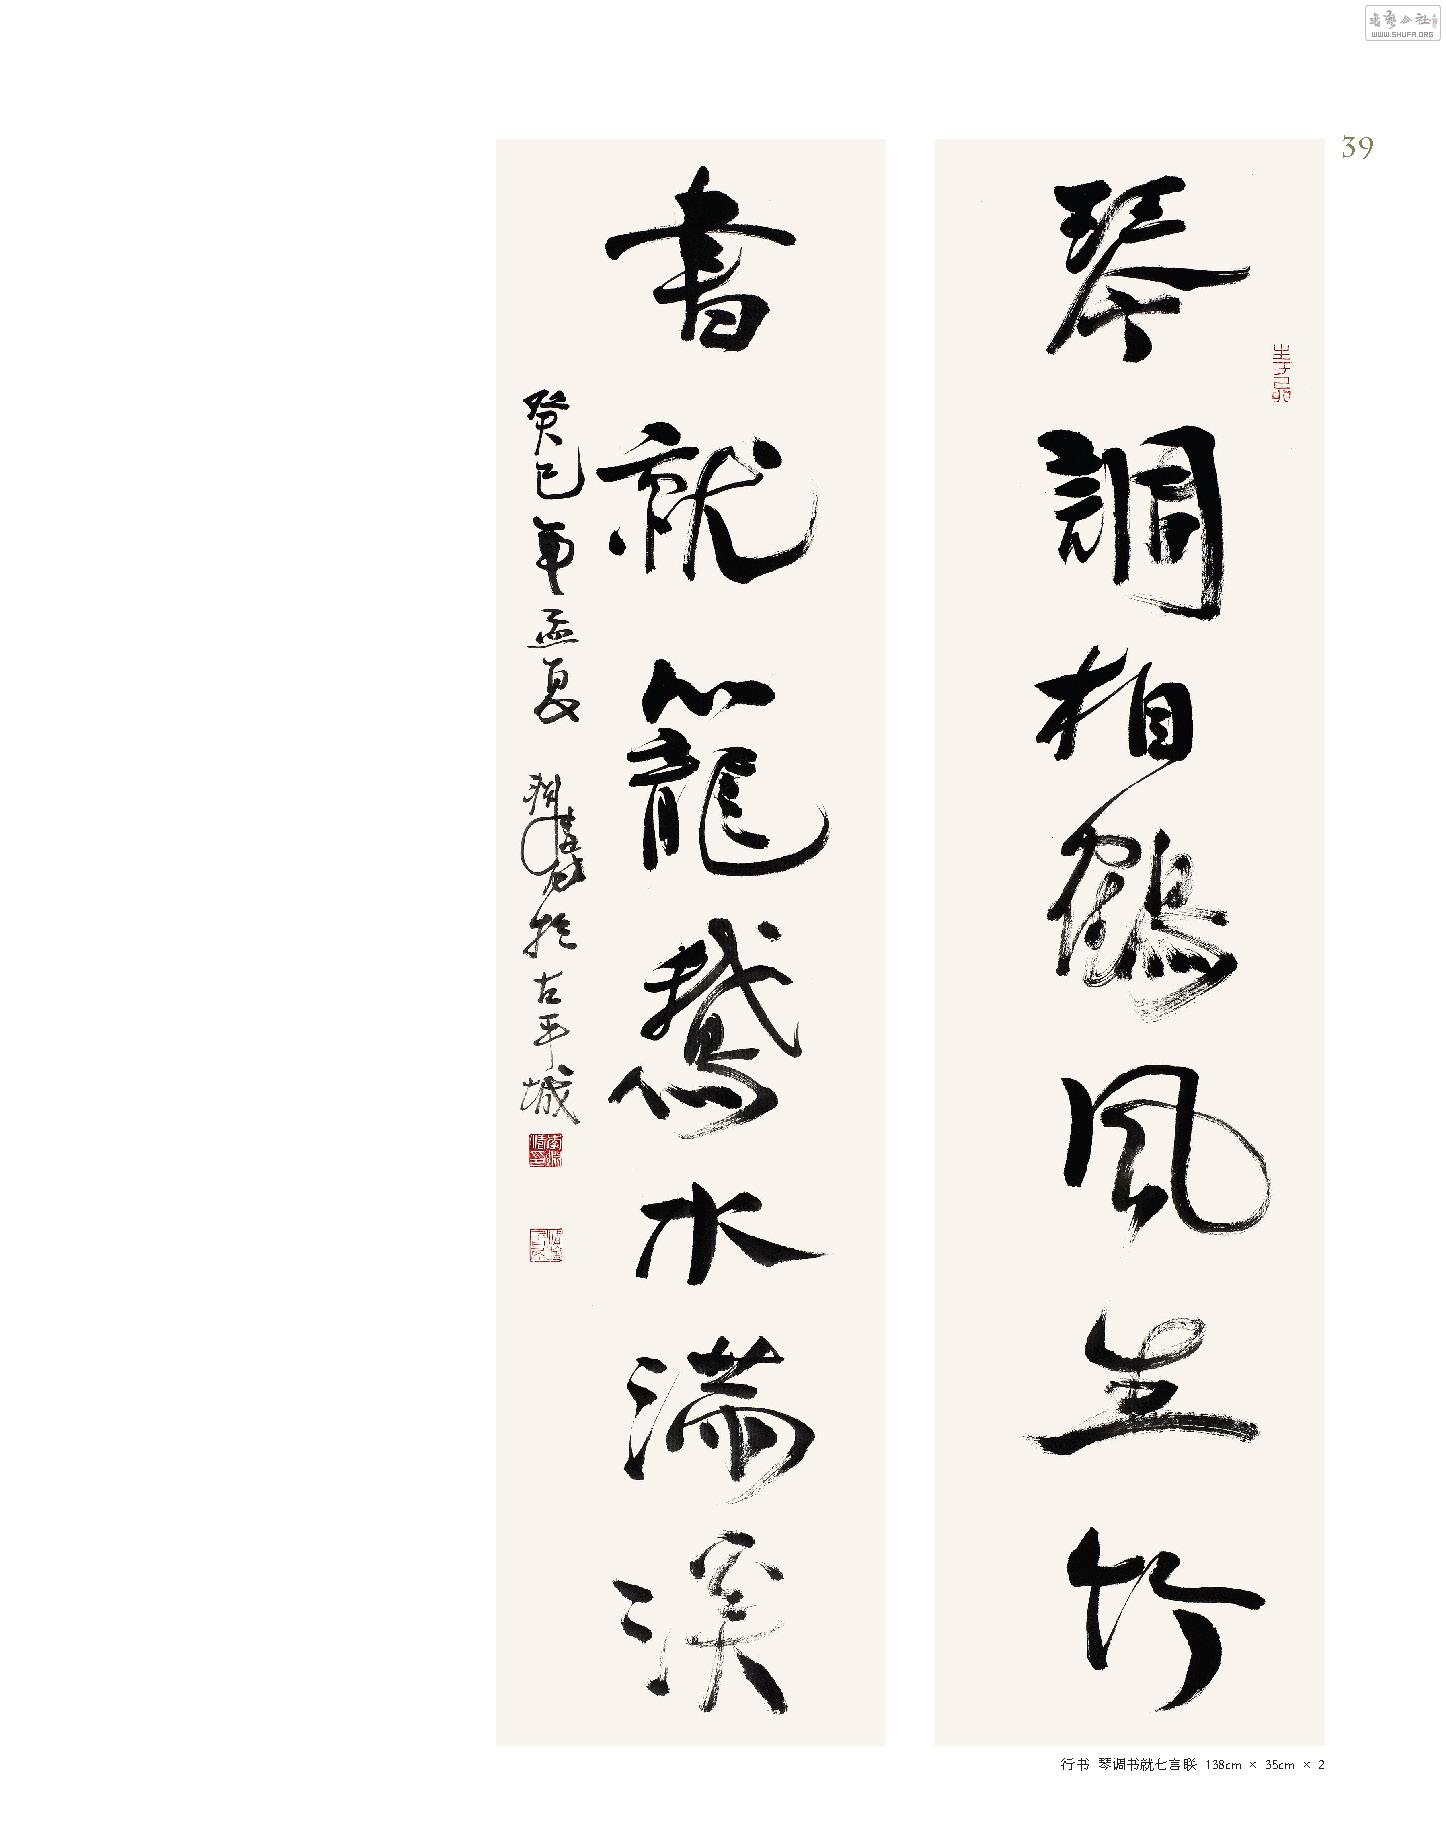 书艺公社
WWW.SHUFA.ORG
39
琴調相鶴風生竹
書就籠鵝水滿溪
癸巳年孟夏
於古平城
行书 琴调书就七言联 138cm × 35cm × 2